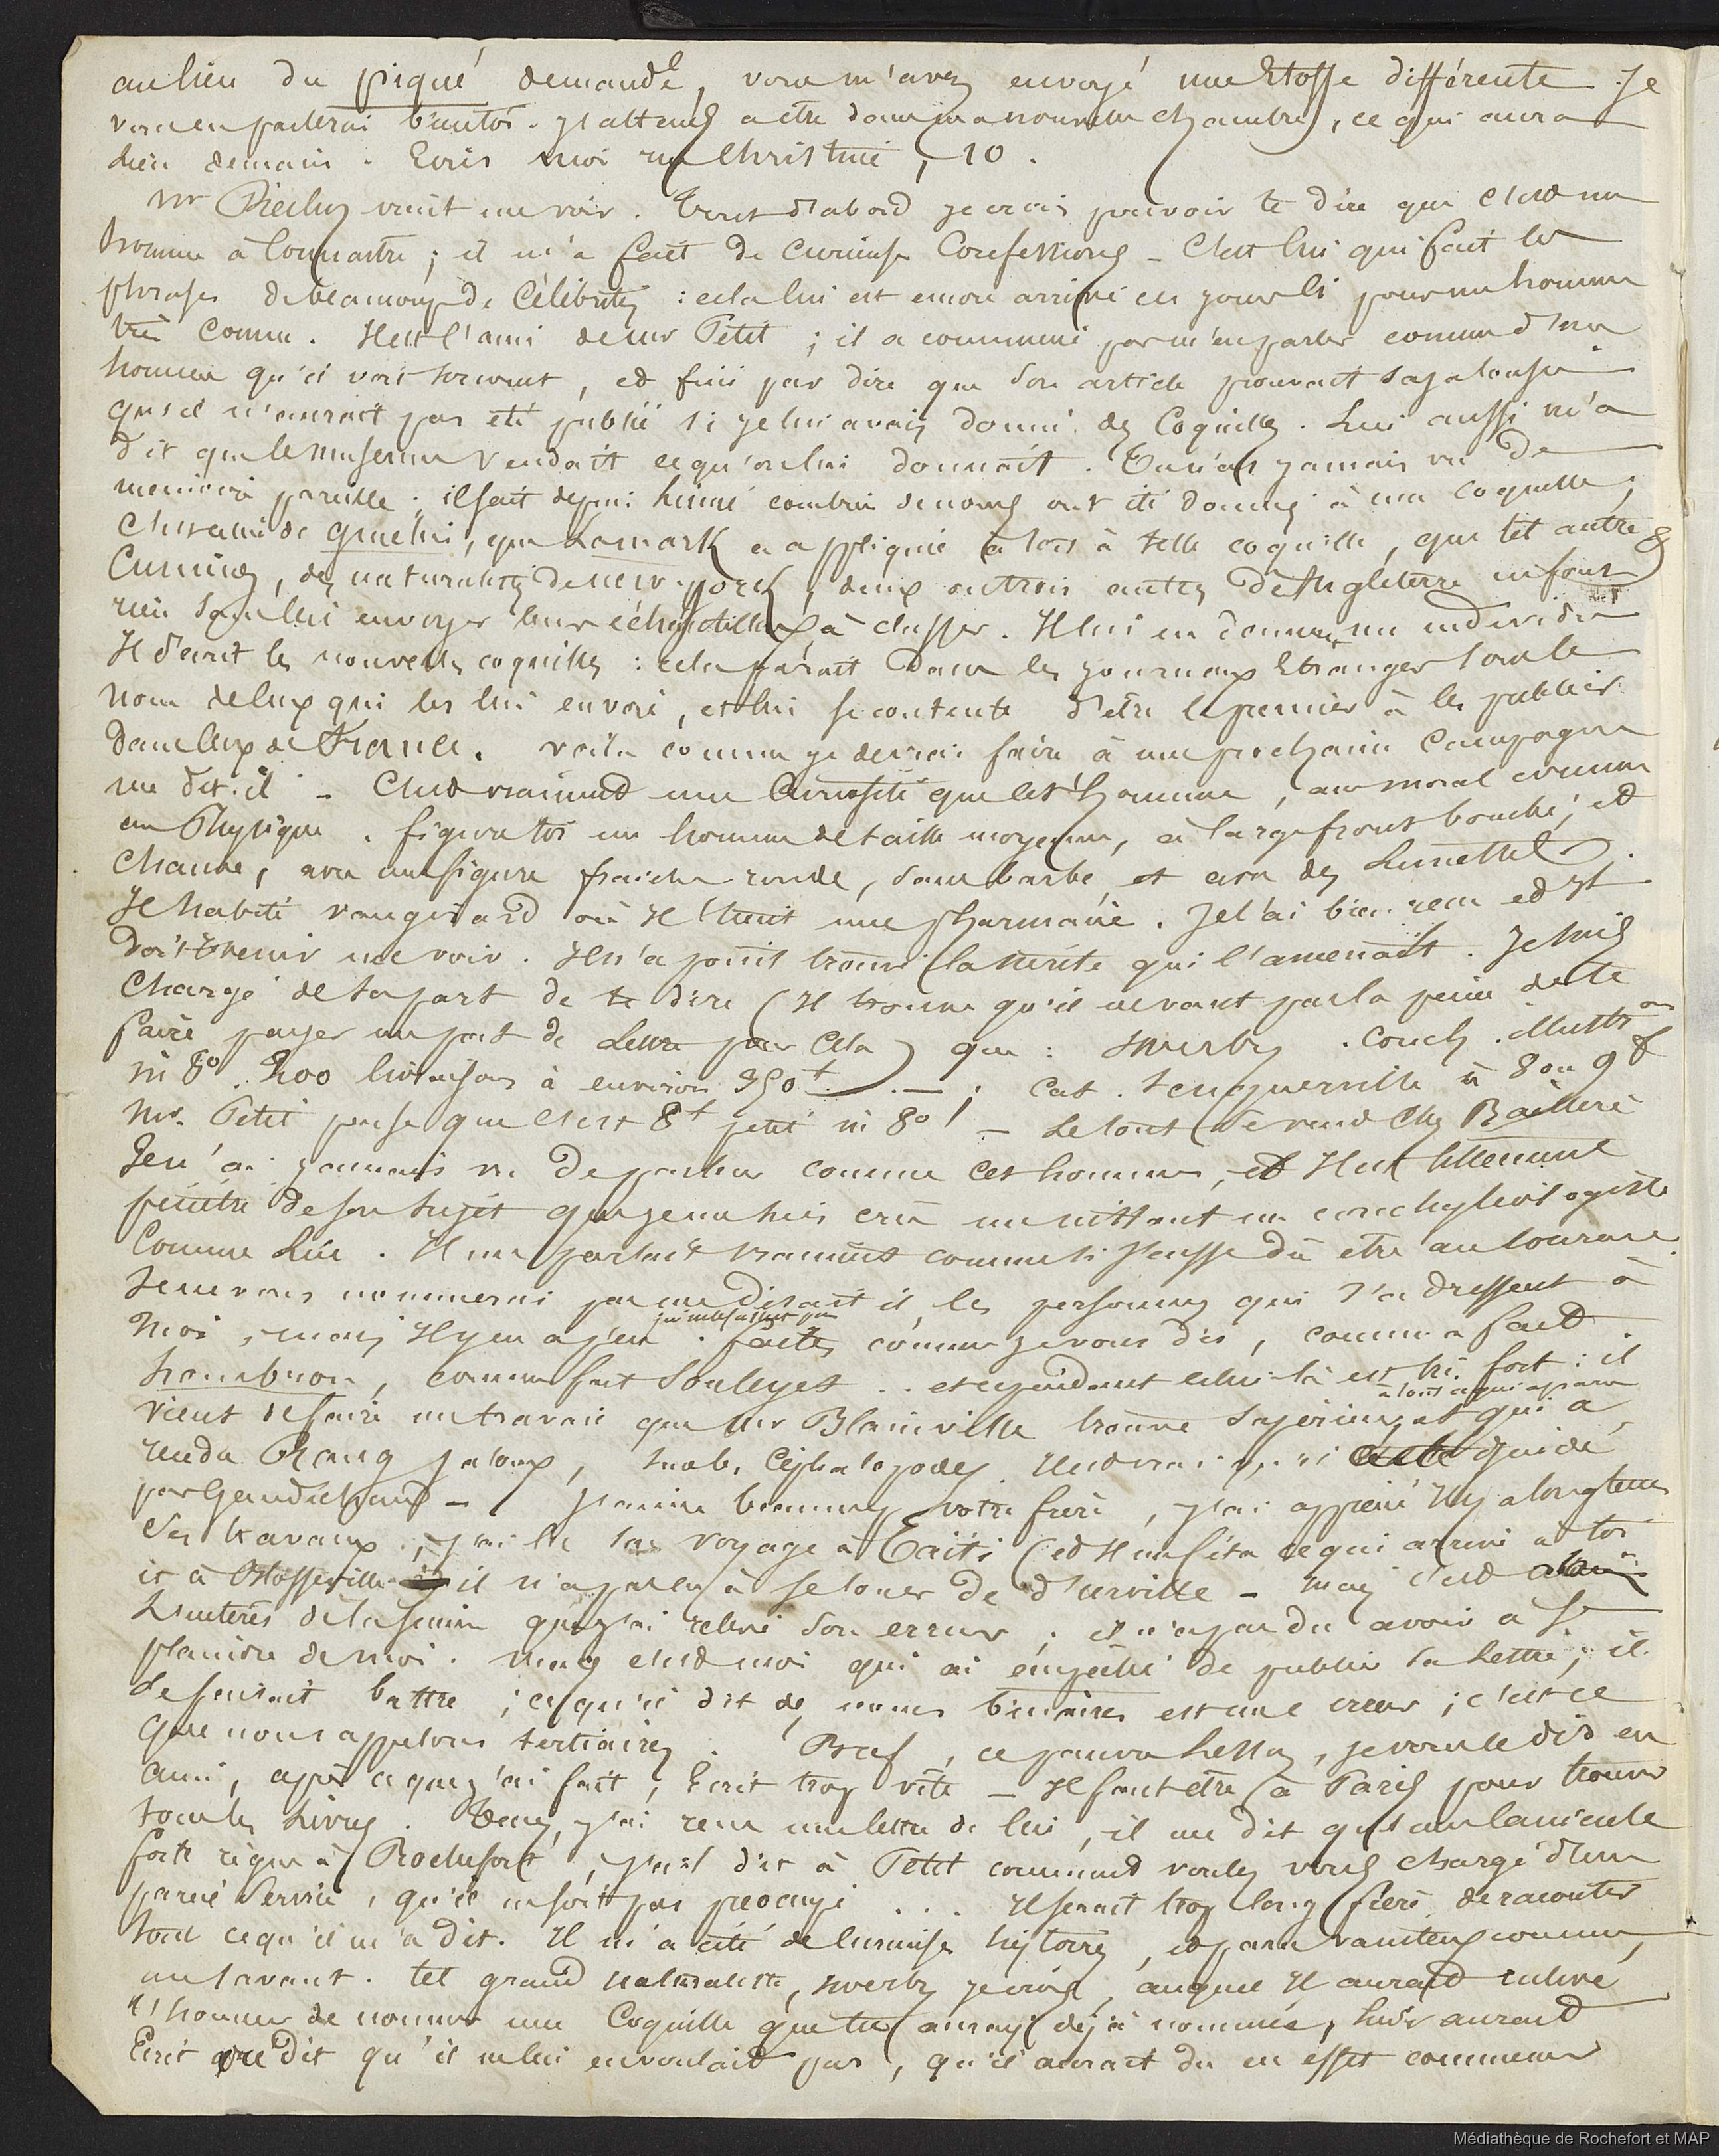 au lieu du piqué demandé, vous m'avez envoyé une Etoffe différente. Je
vous en parlerai bientôt. J'attends a etre dans ma nouvelle chambre, ce qui aura
lieu demain. Ecris moi rue Christine, 10.
Mr vient me voir. Tout d'abord je crois pouvoir te dire que c'est un
homme à Connaitre; il m'a fait de Curieuses Confessions _ C'est lui qui fait les
phrases de beaucoup de Célébrités : cela lui est encore arrivé ces jours ci pour un homme
très Connu. Il est l'ami de mr Petit ; il a commencé par m'en parler comme d'un
homme qu'il voit souvent, et fini par dire que son article prouvait sa jalousie
qu'il n'aurait pas été publié si je lui avais donné des Coquilles. Lui aussi m'a
dit que le museum vendait ce qu'on lui donnait. Tu n'as jamais vu de
memoire pareille ; il sait depuis linné combien de noms ont été donnés à une coquille;
celui de Gmelin, que Lamark a appliqué à tort à telle coquille, que tel autre &
Cuming, des naturalistes de new-york, deux ou trois autres d'Angleterre ne font
rien sans lui envoyer leurs échantillons à classer. Il lui en donne un individu
Il décrit les nouvelles coquilles : cela parait dans les journaux Etranger sous le
nom de ceux qui les lui envoie, et lui se contente d'être le premier à les publier
dans ceux de France. voila comme je devrais faire à une prochaine Campagne
me dit-il _ C'est vraiment une Curiosité que cet homme, au moral comme
au Physique. figure toi un homme de taille moyenne, à large front bouché, et
Chauve, avec une figure fraiche ronde, sans barbe et avec des Lunettes.
Il habite vaugirard où il tient une pharmacie. Je l'ai bien reçu et il
doit venir me voir. Il n'a point trouvé la verité qui l'amenait. Je suis
Chargé de sa part de te dire (Il trouve qu'il ne vaut pas la peine de te
faire payer un port de Lettre pour Cela) que : Sowerby . conch . illustron
in 8o. 200 livraisons à environ 350f _ ; Cat. Tenquerville à 8 ou 9f
Mr. Petit pense que c'est 8f petit in 8o _ Le tout se vend Chez Baillière
Je n'ai jamais vu de parleur comme cet homme, et Il est tellement
pénétré de son sujet que je me suis crû un instant un conchyliologiste
Comme Lui. Il me parlait vraiment comme si j'eusse dû etre au courant.
Je ne vous nommerai pas me disait il les personnes qui s'adressent à
moi, mais Il y en a peu . faites comme je vous dis, comme a fait
hombron, comme fait Souleyet .. et cependant celui-là est très fort : il
vient de faire un travail que Mr Blainville trouve supérieur, et qui a
rendu Rang jaloux, sur les Céphalopodes. Il est vrai qu'il guidé
par Gaudichaud _ J'aime beaucoup votre frère, j'ai apprecié Il y a longtems
ses travaux, j'ai lu son voyage à Taïti (et
il n'a pas eu à se louer de d'urville _ mais c'est
L'interêt de la science que j'ai relevé son erreur ; il n'a pas du avoir à se
plaindre de moi. mais c'est moi qui ai empêché de publier sa Lettre, il
se faisait battre ; ce qu'il dit des noms binaires est une erreur ; c'est ce
que nous appelons tertiaires . Bref, ce pauvre Lesson, je vous le dis en
ami, après ce que j'ai fait, Ecrit trop vite _ Il faut etre à Paris pour trouver
tous les Livres . Tenez, j'ai reçu une lettre de lui, il me dit qu'une canicule
forte règne à Rochefort, j'ai dit à Petit comment voulez vous chargé d'un
pareil service, qu'il ne soit pas préocupé ... Il serait trop long frère de raconter
tout ce qu'il m'a dit. Il m'a cité de Curieuses histoires, et parait vaniteux comme
un savant. tel grand naturaliste, Sowerby je crois, auquel Il aurait enlevé
l'honneur de nommer une Coquille que tu aurais déjà nommée, lui aurait
Ecrit que dit qu'il ne lui en voulait pas, qu'il aurait du en effet commencer
Médiathèque de Rochefort et MAP